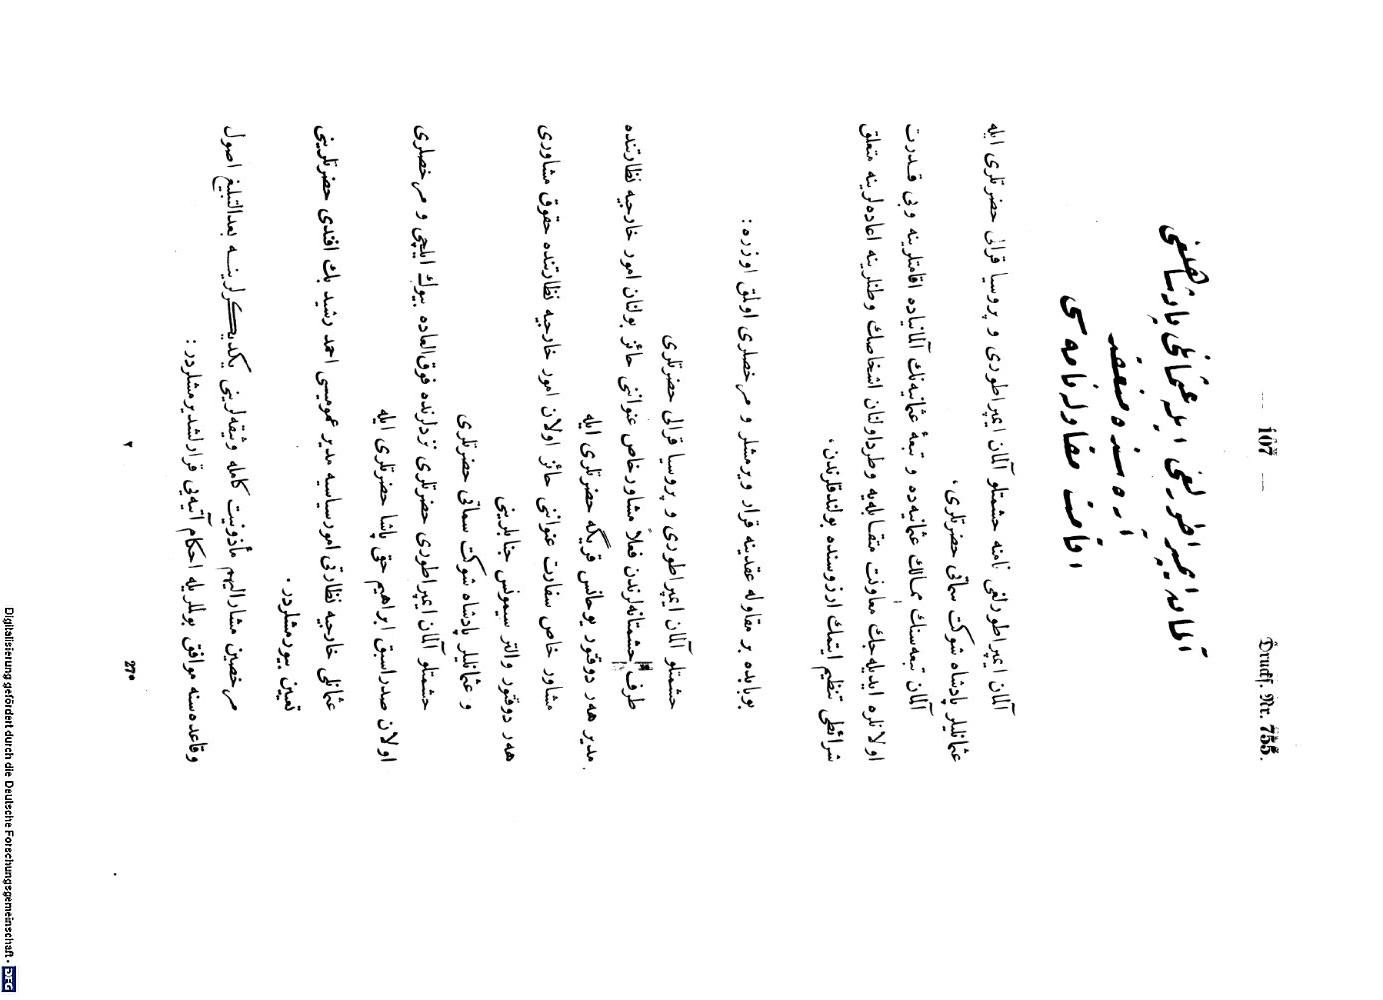 — 107 —
Drucks. Nr. 755.
آلمانیا ایمپراطورلغی ایله عثمانلی پادشاهلغی
آره سنده منعقد
اقامت مقاوله نامه سی
آلمان ایمپراطورلغی نامنه حشمتلو آلمان ایمپراطوری و پروسیا قرالی حضرتلری ایله
عثمانلیلر پادشاه شوکت سماتی حضرتلری،
آلمان تبعه‌سنك ممالك عثمانیه‌ده و تبعۀ عثمانیه‌نك آلمانیاده اقامتلرینه وبی قدرت
اولانلره ایدیله‌جك معاونت متقابله‌یه وطرداولنان اشخاصك وطنلرینه اعاده‌لرینه متعلق
شرائطی تنظیم ایتمك ارزوسنده بولندقلرندن،
بوبابده بر مقاوله عقدینه قرار ویرمشلر و مرخصلری اولمق اوزره :
حشمتلو آلمان ایمپراطوری و پروسیا قرالی حضرتلری
طرف حشمتانه‌لرندن فعلاً مشاور خاص عنواننی حائز بولنان امور خارجیه نظارتنده
مدیر هەر دوقتور یوحانس قریگه حضرتلری ایله
مشاور خاص سفارت عنواننی حائز اولان امور خارجیه نظارتنده حقوق مشاوری
هەر دوقتور والتر سیمونس جنابلرینی
و عثمانلیلر پادشاه شوکت سماتی حضرتلری
حشمتلو آلمان ایمپراطوری حضرتلری نزدلرنده فوق‌العاده بیوك ایلچی و مرخصلری
اولان صدر اسبق ابراهیم حقی پاشا حضرتلری ایله
عثمانلی خارجیه نظارتی امور سیاسیه مدیر عمومیسی احمد رشید بك افندی حضرتلرینی
تعیین بیورمشلردر .
مرخصین مشارالیهم مأذونیت کامله وثیقه‌لرینی یکدیگرلرینه بعدالتبلیغ اصول
وقاعده‌سنه موافق بوللریله احکام آتیه‌یی قرارلشدیرمشلردر :
27*
Digitalisierung gefördert durch die Deutsche Forschungsgemeinschaft - DFG